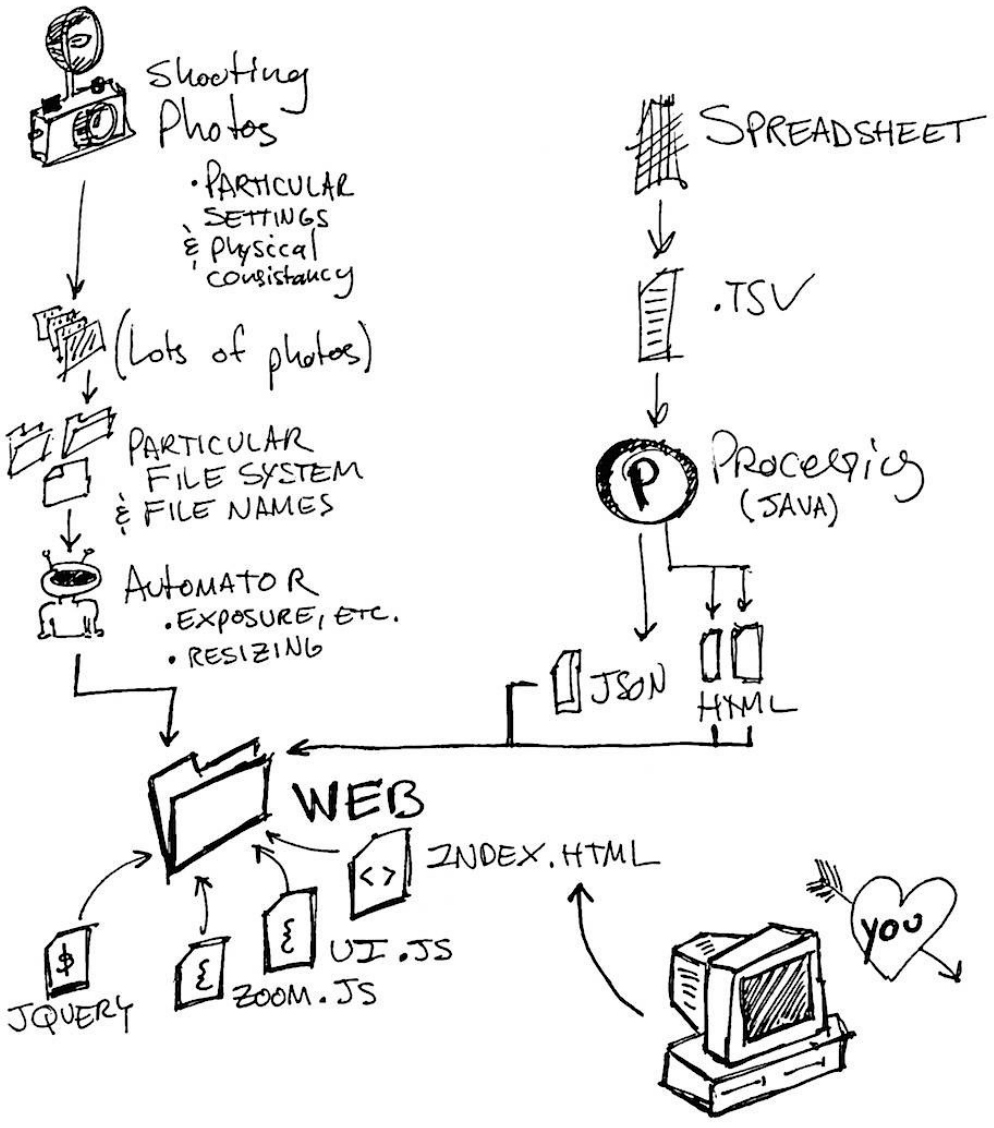 Shooting
Photos
• PARTICULAR
SETTINGS
& physical
consistancy
(Lots of photos)
PARTICULAR
FILE SYSTEM
& FILE NAMES
AUTOMATOR
• EXPOSURE, ETC.
• RESIZING
SPREADSHEET
.TSV
P
Processing
(JAVA)
JSON
HTML
WEB
< >
INDEX.HTML
{
UI.JS
{
ZOOM.JS
$
JQUERY
YOU